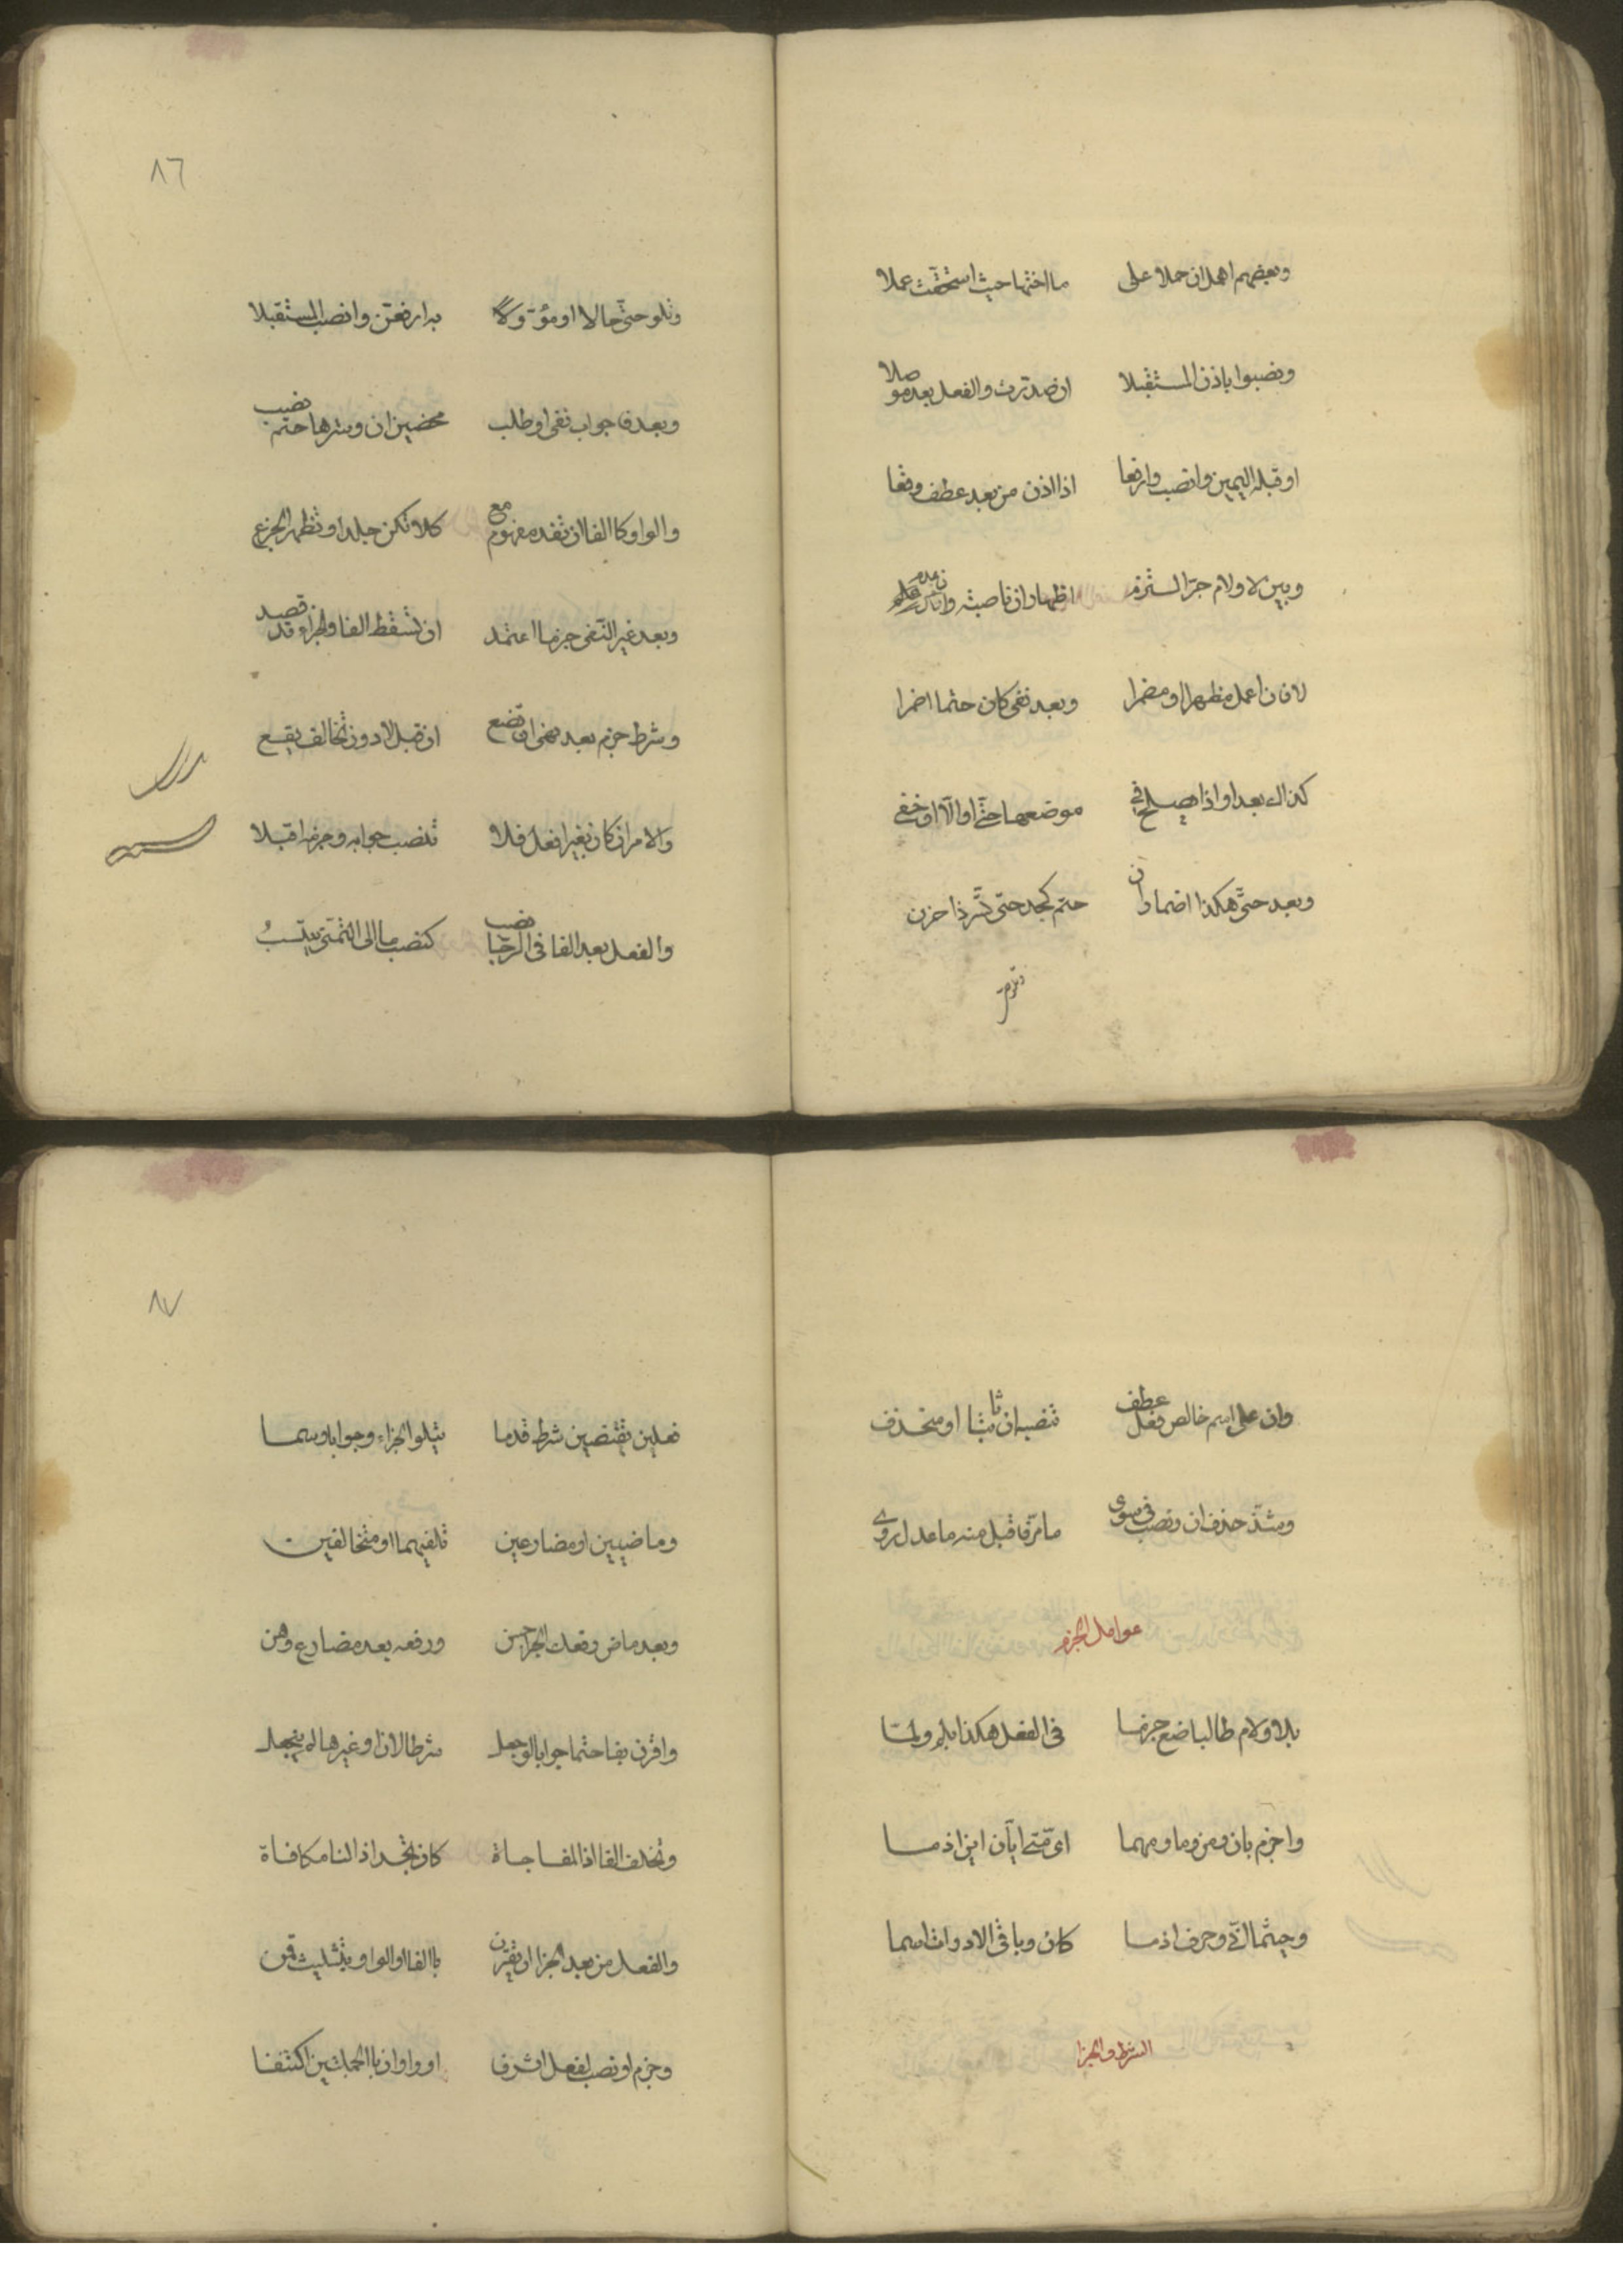 وبعضهم اهمل ان حملا على ما اختها حيث استحقت عملا
ونصبوا باذن المستقبلا ان صدرت والفعل بعد موصلا
او قبله اليمين وانصب وارفعا اذا اذن من بعد عطف وقعا
وبين لا ولام جر التزم اظهار ان ناصبة وان عدم
لا فان اعمل مظهرا او مضمرا وبعد نفى كان حتما اضمرا
كذاك بعد او اذا يصلح في موضعها حتى او الا ان خفى
وبعد حتى هكذا اضمار ان حتم كجد حتى تسر ذا حزن
وتلو حتى
٨٦
وتلو حتى حالا او مؤولا به ارفعن وانصب المستقبلا
وبعد فا جواب نفى او طلب محضين ان وسترها حتم نصب
والواو كا الفا ان تفد مفهوم مع كلا تكن جلدا وتظهر الجزع
وبعد غير النفى جزما اعتمد ان تسقط الفا والجزاء قد قصد
وشرط جزم بعد نهى ان تضع ان قبل لا دون تخالف يقع
والامر ان كان بغير افعل فلا تنصب جوابه وجزمه اقبلا
والفعل بعد الفا فى الرجا نصب كنصب ما الى التمنى ينتسب
وان على اسم خالص فعل عطف تنصبه ان ثابتا او منحذف
وشذ حذف ان ونصب فى سوى ما مر فاقبل منه ما عدل روى
عوامل الجزم
بلا ولام طالبا ضع جزما فى الفعل هكذا بلم ولما
واجزم بان ومن وما ومهما اى متى ايان اين اذ ما
وحيثما انى وحرف اذ ما كان وباقى الادوات اسما
الشرط والجزا
٨٧
فعلين تقتضين شرط قدما يتلو الجزاء وجوابا وسما
وماضيين او مضارعين تلفيهما او متخالفين
وبعد ماض رفعك الجزا حسن ورفعه بعد مضارع وهن
واقرن بفا حتما جوابا لو جعل شرطا لان او غيرها لم ينجعل
وتخلف الفا اذا المفاجاة كان تجد اذا لنا مكافاة
والفعل من بعد الجزا ان يقترن باالفا او الواو بتثليث قمن
وجزم او نصب لفعل اثر فا او واو ان باالجملتين اكتنفا